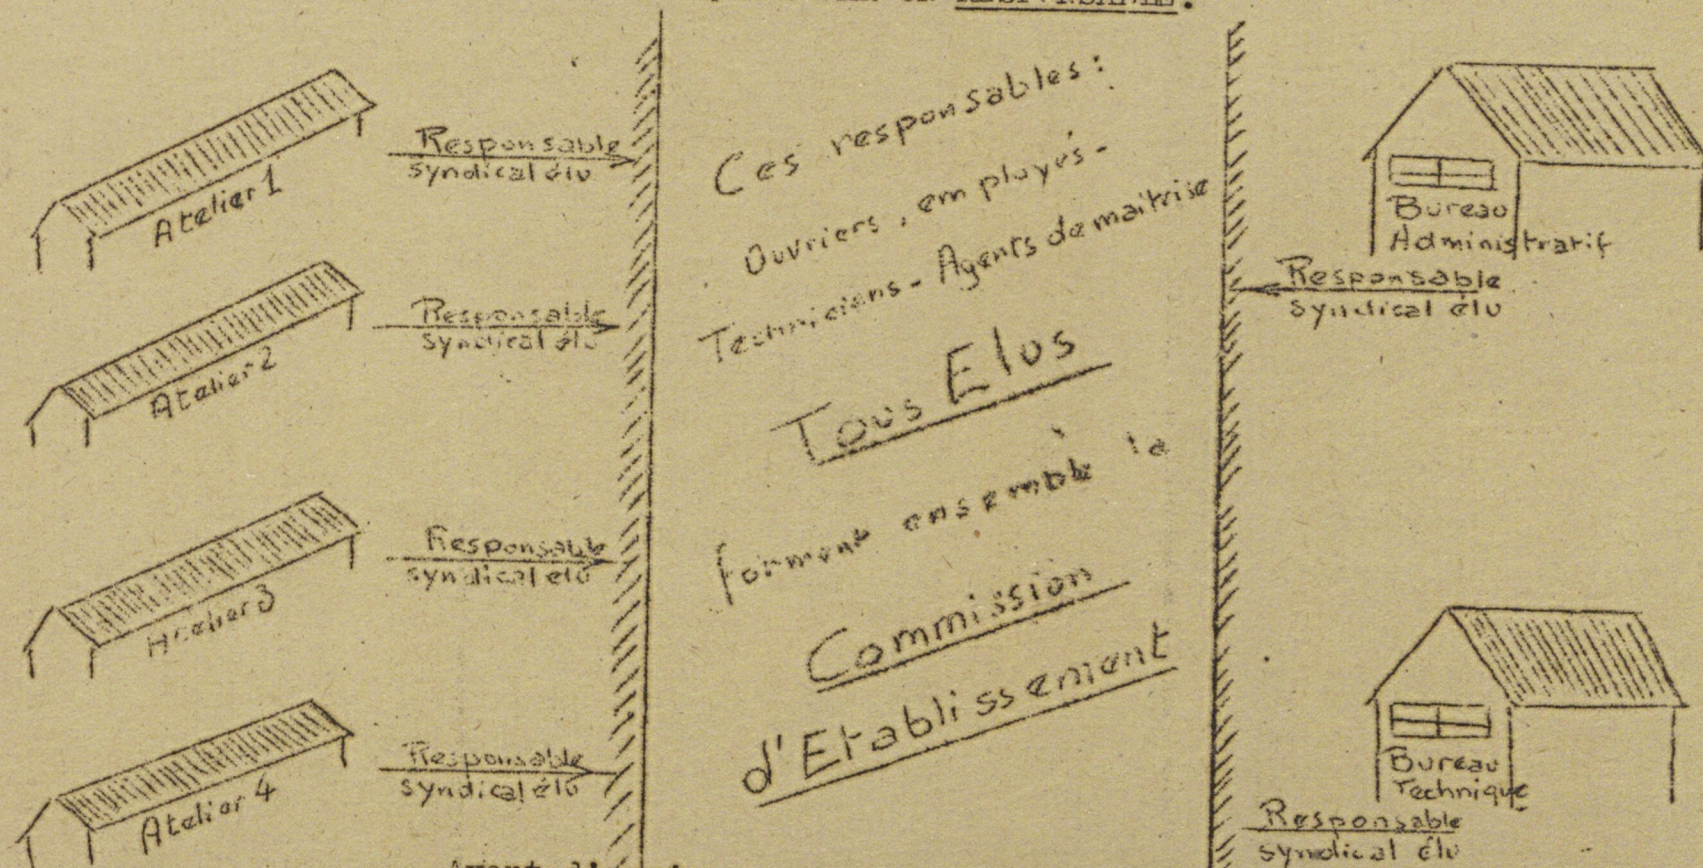 RESPONSABLE.
Atelier 1
Responsable
syndical élu
Atelier 2
Responsable
syndical élu
Atelier 3
Responsable
syndical élu
Atelier 4
Responsable
syndical élu
Ces responsables :
Ouvriers, employés -
Techniciens - Agents de maitrise
Tous Elus
forment ensemble la
Commission
d'Etablissement
Bureau
Administratif
Responsable
syndical élu
Bureau
Technique
Responsable
syndical élu